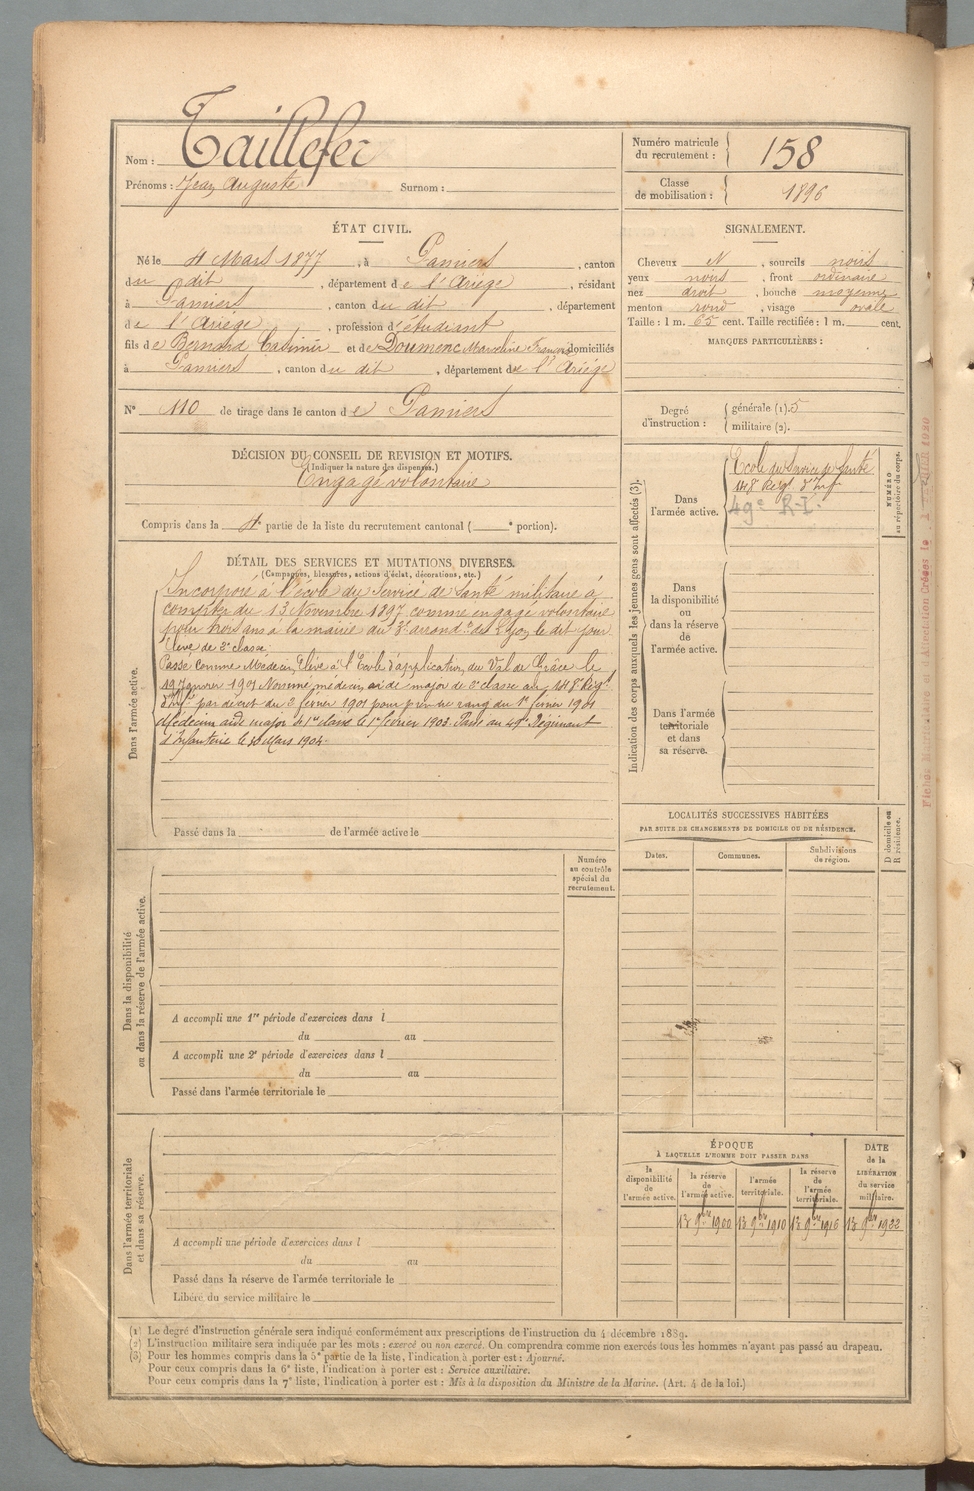 Nom : Taillefer
Prénoms : Jean Auguste Surnom :
Numéro matricule
du recrutement : 158
Classe
de mobilisation : 1896
ÉTAT CIVIL.
Né le 4 Mars 1877, à Pamiers, canton
du dit, département de l'Ariège, résidant
à Pamiers, canton du dit, département
de l'Ariége, profession d'étudiant
fils de Bernard Casimir et de Doumenc Marceline domiciliés
à Pamiers, canton du dit, département de l'Ariége
N° 110 de tirage dans le canton de Pamiers
SIGNALEMENT.
Cheveux N, sourcils noirs
yeux noirs, front ordinaire
nez droit, bouche moyenne
menton rond, visage ovale
Taille : 1 m. 65 cent. Taille rectifiée : 1 m. cent.
MARQUES PARTICULIÈRES :
Degré
d'instruction :
générale (1). 5
militaire (2).
DÉCISION DU CONSEIL DE REVISION ET MOTIFS.
(Indiquer la nature des dispenses.)
Engagé volontaire
Compris dans la 4e partie de la liste du recrutement cantonal ( e portion).
DÉTAIL DES SERVICES ET MUTATIONS DIVERSES.
(Campagnes, blessures, actions d'éclat, décorations, etc.)
Dans l'armée active.
Incorporé à l'école du Service de Santé militaire à
compter du 13 Novembre 1897 comme engagé volontaire
pour trois ans à la mairie du 3e arrondt de Lyon le dit jour
Elève de 2e classe.
Passé comme Médecin Elève à l'Ecole d'application du Val de Grâce le
1901 Nommé médecin aide major de 2e classe au 148e Regt
d'Infie par décret du 3 février 1901 pour prendre rang du 1er février 1901
Médecin aide major de 1re classe le 1er février 1903. Passé au 49e Régiment
d'Infanterie le Mars 1904.
Passé dans la de l'armée active le
Indication des corps auxquels les jeunes gens sont affectés (3).
NUMÉRO
au répertoire du corps.
Dans
l'armée active.
Ecole du Service de Santé
148e Regt d'Inf
49e R-I.
Dans
la disponibilité
ou
dans la réserve
de
l'armée active.
Dans l'armée
territoriale
et dans
sa réserve.
LOCALITÉS SUCCESSIVES HABITÉES
PAR SUITE DE CHANGEMENTS DE DOMICILE OU DE RÉSIDENCE.
Dates.
Communes.
Subdivisions
de région.
D domicile ou
R résidence.
Numéro
au contrôle
spécial du
recrutement.
Dans la disponibilité
ou dans la réserve de l'armée active.
A accompli une 1re période d'exercices dans l
du au
A accompli une 2e période d'exercices dans l
du au
Passé dans l'armée territoriale le
Dans l'armée territoriale
et dans sa réserve.
A accompli une période d'exercices dans l
du au
Passé dans la réserve de l'armée territoriale le
Libéré du service militaire le
ÉPOQUE
À LAQUELLE L'HOMME DOIT PASSER DANS
la
disponibilité
de
l'armée active.
la réserve
de
l'armée active.
l'armée
territoriale.
la réserve
de
l'armée
territoriale.
DATE
de la
LIBÉRATION
du service
militaire.
13 9bre 1900 13 9bre 1910 13 9bre 1916 13 9bre 1922
(1) Le degré d'instruction générale sera indiqué conformément aux prescriptions de l'instruction du 4 décembre 1889.
(2) L'instruction militaire sera indiquée par les mots : exercé ou non exercé. On comprendra comme non exercés tous les hommes n'ayant pas passé au drapeau.
(3) Pour les hommes compris dans la 5e partie de la liste, l'indication à porter est : Ajourné.
Pour ceux compris dans la 6e liste, l'indication à porter est : Service auxiliaire.
Pour ceux compris dans la 7e liste, l'indication à porter est : Mis à la disposition du Ministre de la Marine. (Art. 4 de la loi.)